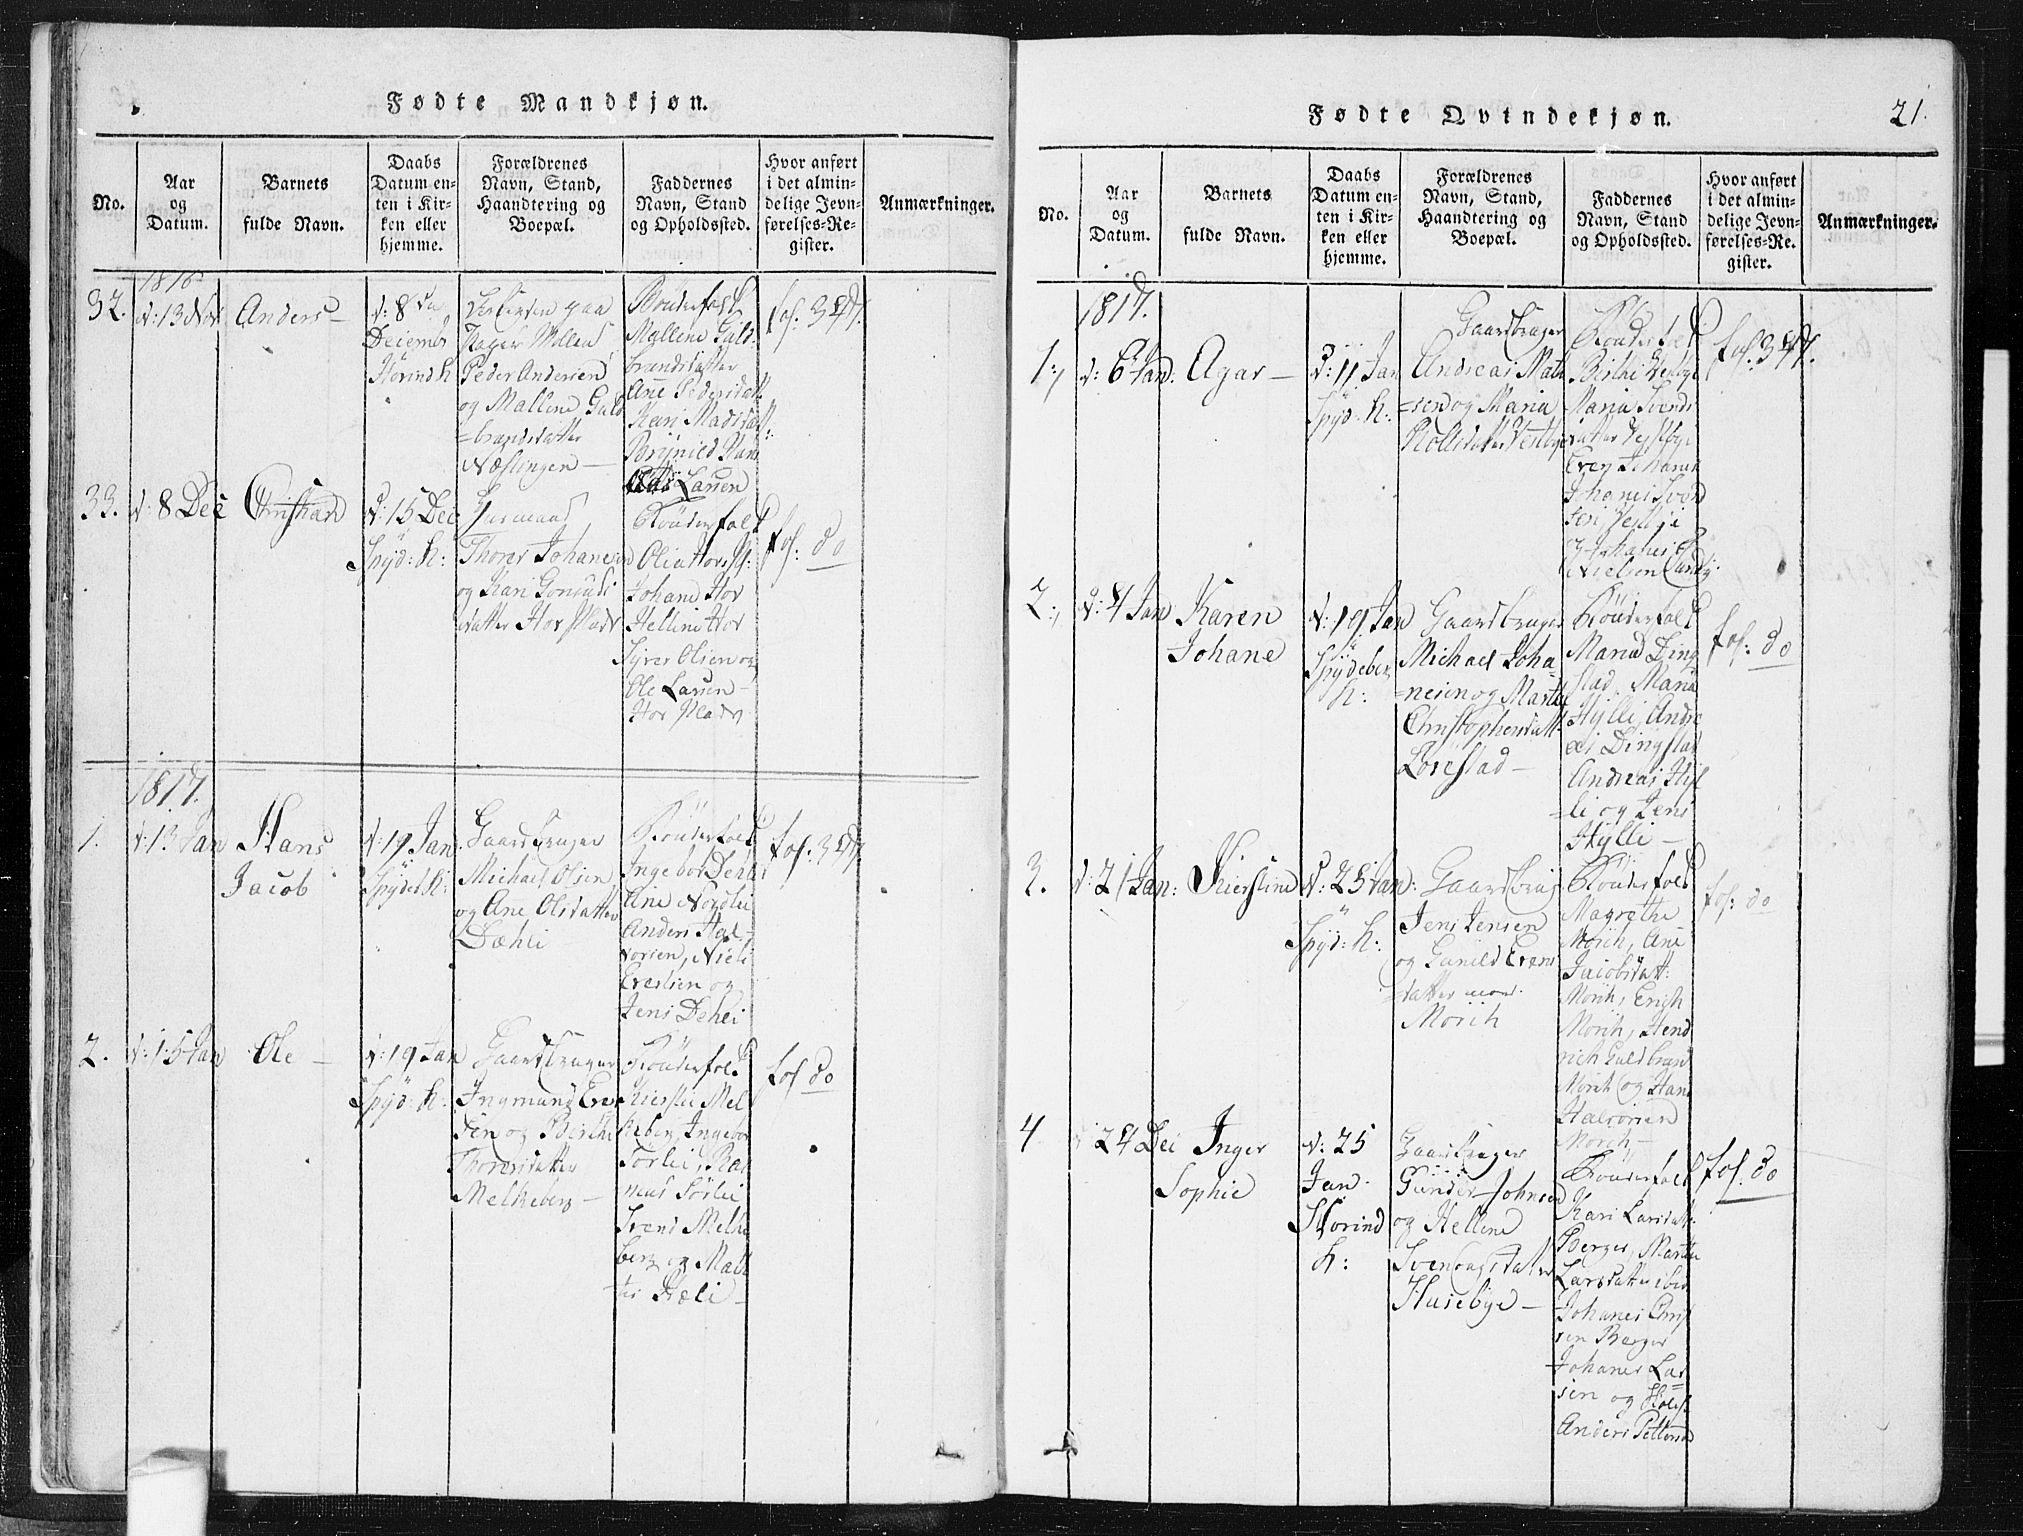 Fødte Mandkjøn.
No.
Aar
og
Datum.
Barnets
fulde Navn.
Daabs
Datum en-
ten i Kir-
ken eller
hjemme.
Forældrenes
Navn, Stand,
Haandtering og
Boepæl.
Faddernes
Navn, Stand
og Opholdssted.
Hvor anført
i det almin-
delige Jevn-
førelses-Re-
gister.
Anmærkninger.
1816
32.
d: 13 Nov
Anders
d: 8 da
Decemb
Peder Andersen
og Mallene Guld
=brandsdatter
Næslingen
Bönderfolk
Mallene Guld-
brandsdatter
Ane Pedersdatt
Kari Madsdatt
Larsen
fol: 347.
33.
d: 8 Dec
Christian
d: 15 Dec
Spÿd: K:
Huusmand
Thorer Johanesen
og Kari
datter
Bönderfolk
Johane Hov
Helline Hov
Syver Olsen og
Ole Larsen
fol: do
1817.
1.
d: 13 Jan
Hans
Jacob
d: 19 Jan
Spÿdeb K:
Gaardbruger
Michael Olsen
og Ane Olsdatter
Dæhli
Bönderfolk
Ingebor Dehli
Ane Nordlie
Anders Hal-
vorsen, Niels
og
Jens Dehli
fol: 347.
2.
d: 15 Jan
Ole
d: 19 Jan
Spÿd: K:
Gaardbruger
Ingmund Ever
sen og Berthe
Thoresdatter
Melkeberg
Bönderfolk
Kierstie Mel
keberg, Ingebor
Sörlie, Ras
mus Sörlie
Svend Melke
berg og Mat
fol do
Fødte Qvindekjøn.
21.
No.
Aar
og
Datum.
Barnets
fulde Navn.
Daabs
Datum en-
ten i Kir-
ken eller
hjemme.
Forældrenes
Navn, Stand,
Haandtering og
Boepæl.
Faddernes
Navn, Stand
og Opholdssted.
Hvor anført
i det almin-
delige Jevn-
førelses-Re-
gister.
Anmærkninger.
1817.
1.
d: 6 Jan:
Agar
d: 11 Jan
Spÿd: K:
Gaardbruger
Andreas Math
=sen og Maria
Vestbye
Bönderfolk
Berthe Vestbye
Maria Svends
datter Vestbye
Even Johanes
Vestbye
Johanes
Nielsen
fol. 347.
2.
d: 4 Jan
Karen
Johane
d: 19 Jan
Spÿdeberg
K:
Gaardbruger
Michael Joha
=nesen og Marthe
Christophersdatt:
Lörestad
Bönderfolk
Maria Ding
stad, Maria
Hylli, Andre
as Dingstad
Andreas Hyl
li og Jens
Hylli
fol: do
3.
d: 21 Jan:
Kierstine
d: 25 Jan:
Spÿd: K:
Gaardbrug
Jens Jensen
og Gunild Evens
datter
Mörch
Bönderfolk
Magrethe
Mörch, Ane
Jacobsdatt:
Mörch, Erich
Mörch, Hend
rich Guldbran
Mörch og Hans
Halvorsen
Mörch
fol: do
4
24 Dec
Inger
Sophie
d: 25
Jan
K:
Gaardbruger
Gunder Johnsen
og Hellene
Svendsdatter
Husebÿe
Bönderfolk
Kari Larsdatt:
Berger, Marthe
Larsdatter ibid
Johanes Chris
sen Berger
Johanes Lar
sen og
Anders Pettersen
fol. do